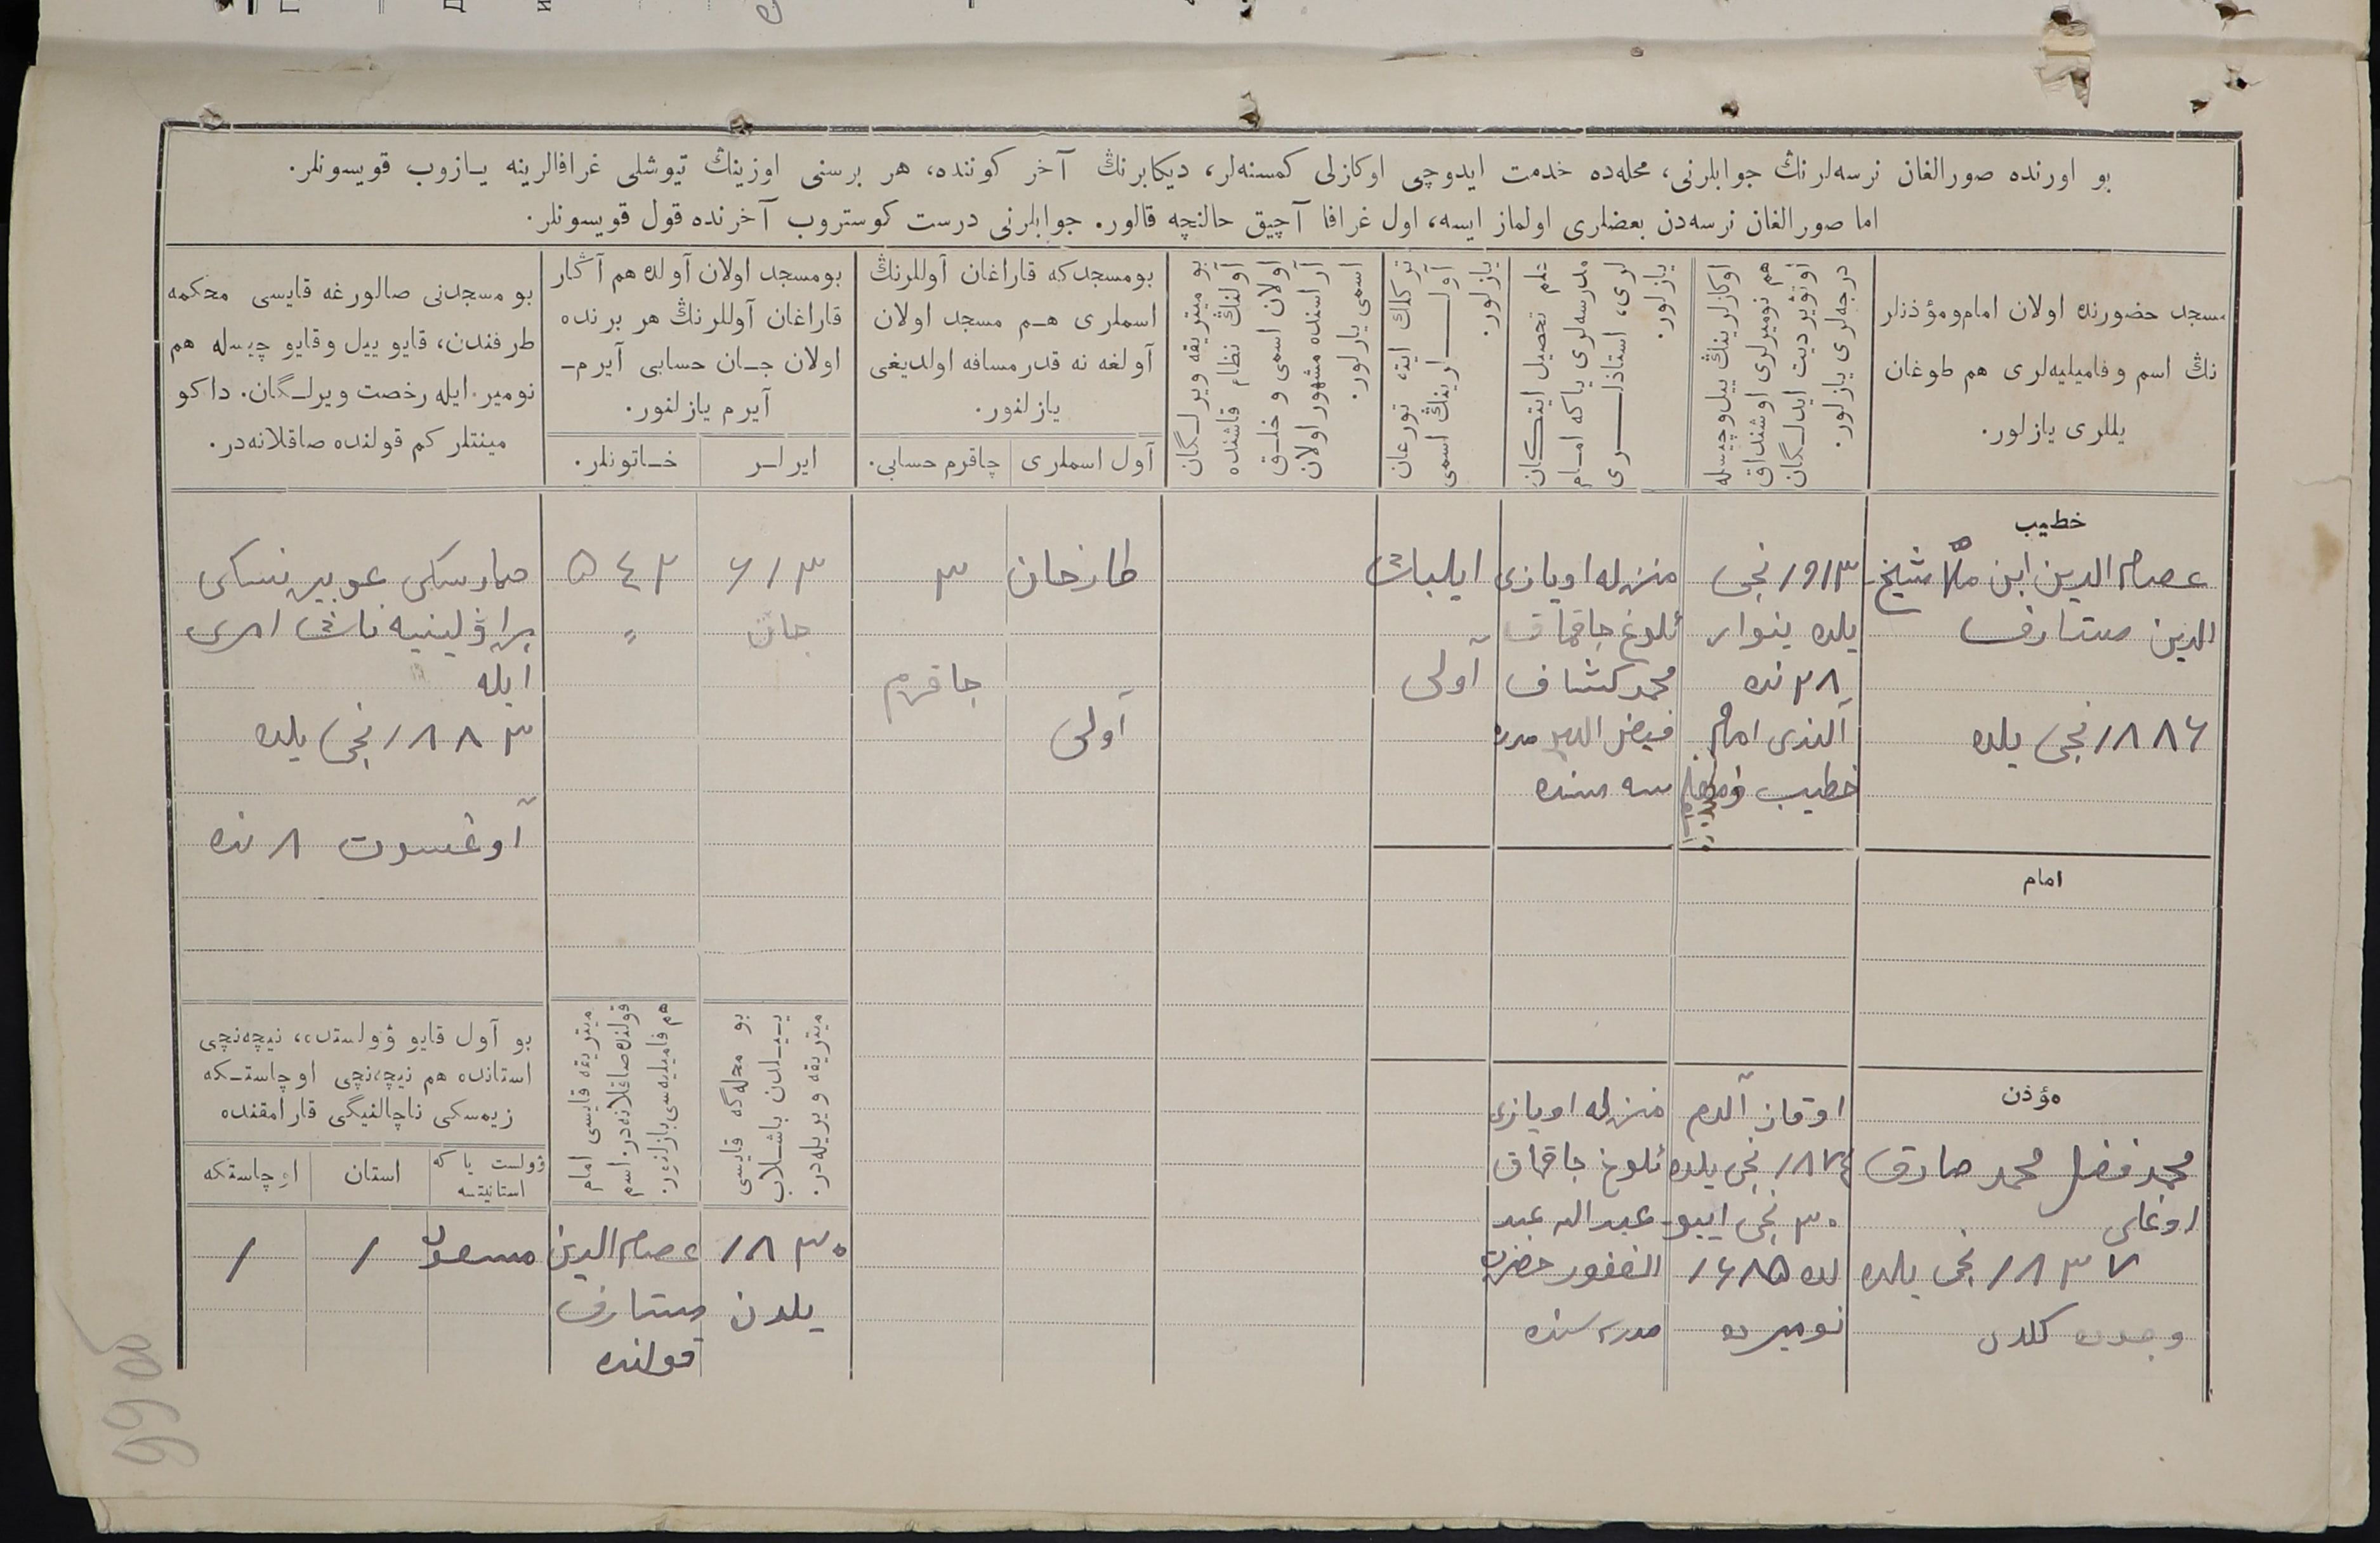 بو اورنده صورالغان نرسه‌لرنڭ جوابلرنی، محله‌ده خدمت ایدوچی اوكازلی كمسنه‌لر، دیكابرنڭ آخر كوننده، هر برسنی اوزینڭ تیوشلی غرافالرینه یازوب قویسونلر.
اما صورالغان نرسه‌دن بعضلری اولماز ایسه، اول غرافا آچیق حالنچه قالور. جوابلرنی درست كوستروب آخرنده قول قویسونلر.
مسجد حضورنده اولان امام و مؤذنلر
نڭ اسم و فامیلیه‌لری هم طوغان
یللری یازلور.
اوكازلرینڭ ییل و چیسله
هم نومیرلری اوشنداق
اوتویردیت ایدلگان
درجه‌لری یازلور.
علم تحصیل ایتكان
مدرسه‌لری یاكه امام
لری، استاذلری
یازلور.
تركلك ایته تورغان
آوللرینڭ اسمی
یازلور.
بو میتریقه ویرلگان
آولنڭ نظام قاشنده
اولان اسمی و خلق
آراسنده مشهور اولان
اسمی یازلور.
بومسجدكه قاراغان آوللرنڭ
اسملری هم مسجد اولان
آولغه نه قدر مسافه اولدیغی
یازلنور.
آول اسملری
چاقرم حسابی.
بومسجد اولان آولده هم آڭار
قاراغان آوللرنڭ هر برنده
اولان جان حسابی آیرم-
آیرم یازلنور.
ایرلر
خاتونلر.
بو مسجدنی صالورغه قایسی محكمه
طرفندن، قایو ییل وقایو چیسله هم
نومیر ایله رخصت ویرلگان. داكو
مینتلر كم قولنده صاقلانه‌در.
خطیب
عصام الدین ابن ملا شیخ
الدین ستارف
۱۸۸۶ نجی یلده
۱۹۱۳ نجی
یلده ینوار
۲۸ نده
آلندی امام
خطیب
منزله اویازی
ئلوغ چاقماق
محمد كشاف
فیض الله مدر
سه سنده
ایلباث
آولی
طازخان
آولی
۳
چاقرم
۶۱۳
جان
۵۴۲
"
صمارسكی غوبیرنسكی
پراۋلینیه ناڭ امری
ایله
۱۸۸۳ نجی یلده
آوغسوت ۸ نده
امام
مؤذن
محمد فضل محمد صادق
اوغلی
۱۸۳۷ نجی یلده
اوقاز آلدم
۱۸۷۴ نجی یلده
۳۰ نجی اییو
لده ۱۶۸۵
نومیرده
منزله اویازی
ئلوغ چاقماق
عبدالله عبد
الغفور حضرت
مدرسه سنده
بو محله‌گه قایسی
ییلدن باشلاب
میتریقه ویریله‌در.
میتریقه قایسی امام
قولنده صاقلانه‌در، اسم
هم فامیلیه‌سی یازلنور.
بو آول قایو ۋولستده، نیچه‌نچی
استانده هم نیچه‌نچی اوچاستكه
زیمسكی ناچالنیگی قارامقنده
ۋولست یاكه
استانیتسه
استان
اوچاستكه
۱۸۳۰
یلدن
عصام الدین
ستارف
قولنده
۱
۱